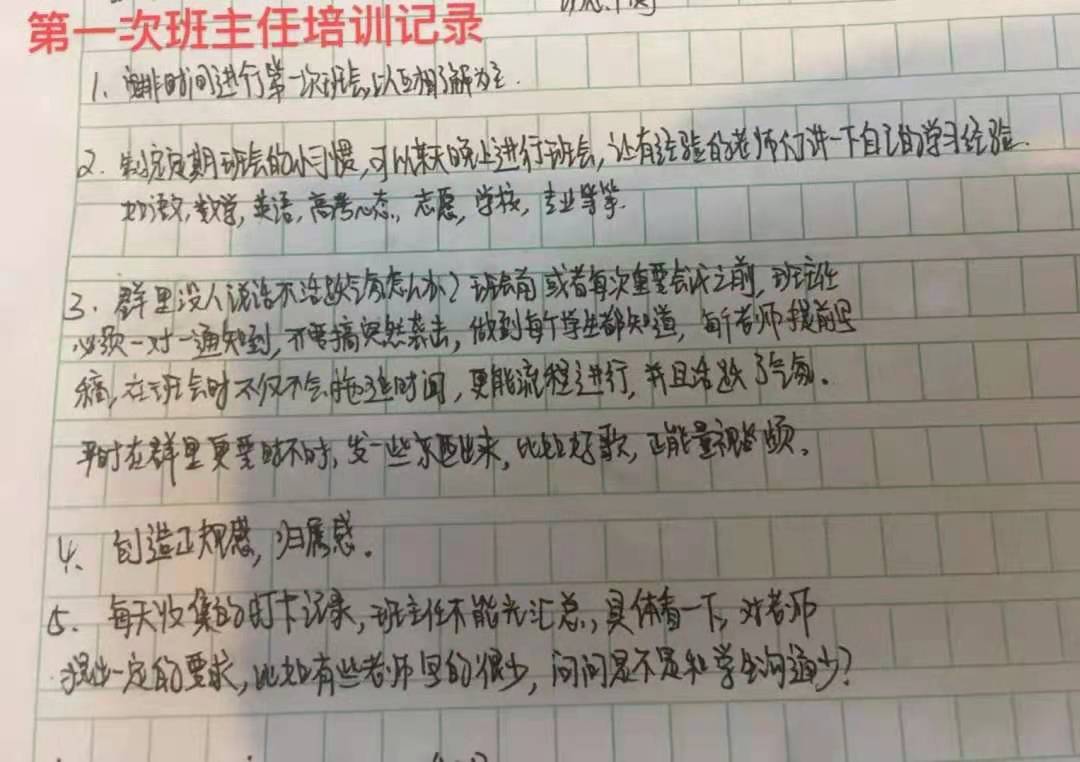 第一次班主任培训记录
1. 安排时间进行第一次班会,以互相了解为主.
2. 制定定期班会的小习惯,可以某天晚上进行班会,让有经验的老师们讲一下自己的学习经验.
如语文,数学,英语,高考心态,志愿,学校,专业等等.
3. 群里没人说话不活跃气氛怎么办?班会前或者每次重要会议之前,班主任
必须一对一通知到,不要搞突然袭击,做到每个学生都知道,每个老师提前写
稿,在班会时不仅不会拖延时间,更能流程进行,并且活跃了气氛.
平时在群里更要时不时,发一些东西出来,比如好歌,正能量视频。
4. 创造正规感,归属感。
5. 每天收集的打卡记录,班主任不能光汇总,具体看一下,对老师
提出一定的要求,比如有些老师写的很少,问问是不是和学生沟通少?